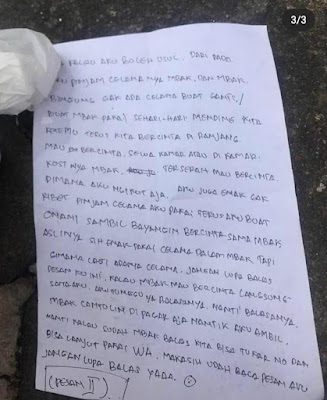 3/3
KALAU AKU BOLEH USUL. DARI PADA
PINJAM CELANA NYA MBAK, DAN MBAK.
BINGUNG GAK ADA CELANA BUAT GANTI/
BUAT MBAK PAKAI SEHARI-HARI MENDING KITA
KETEMU TERUS KITA BERCINTA DI RANJANG.
MAU BERCINTA. SEWA KAMAR ATAU DI KAMAR.
KOST NYA MBAK. TERSERAH MAU BERCINTA.
DIMANA AKU NGIKUT AJA. AKU JUGA ENAK GAK
RIBET PINJAM CELANA AKU PAKAI TERUS AKU BUAT
ONANI SAMBIL BAYANGIN BERCINTA SAMA MBAK
ASLINYA SIH ENAK PAKAI CELANA DALAM MBAK TAPI
GIMANA LAGI ADANYA CELANA. JANGAN LUPA BALAS
PESAN KU INI. KALAU MBAK MAU BERCINTA LANGSUNG
SAMA AKU. AKU TUNGGU YA BALASANYA. NANTI BALASANYA.
MBAK CANTOLIN DI PAGAR AJA NANTIK AKU AMBIL.
NANTI KALAU SUDAH MBAK BALAS KITA BISA TUKAR NO DAN
BISA LANJUT PAKAI WA. MAKASIH UDAH BACA PESAN AKU
JANGAN LUPA BALAS YADA.
(PESAN II)